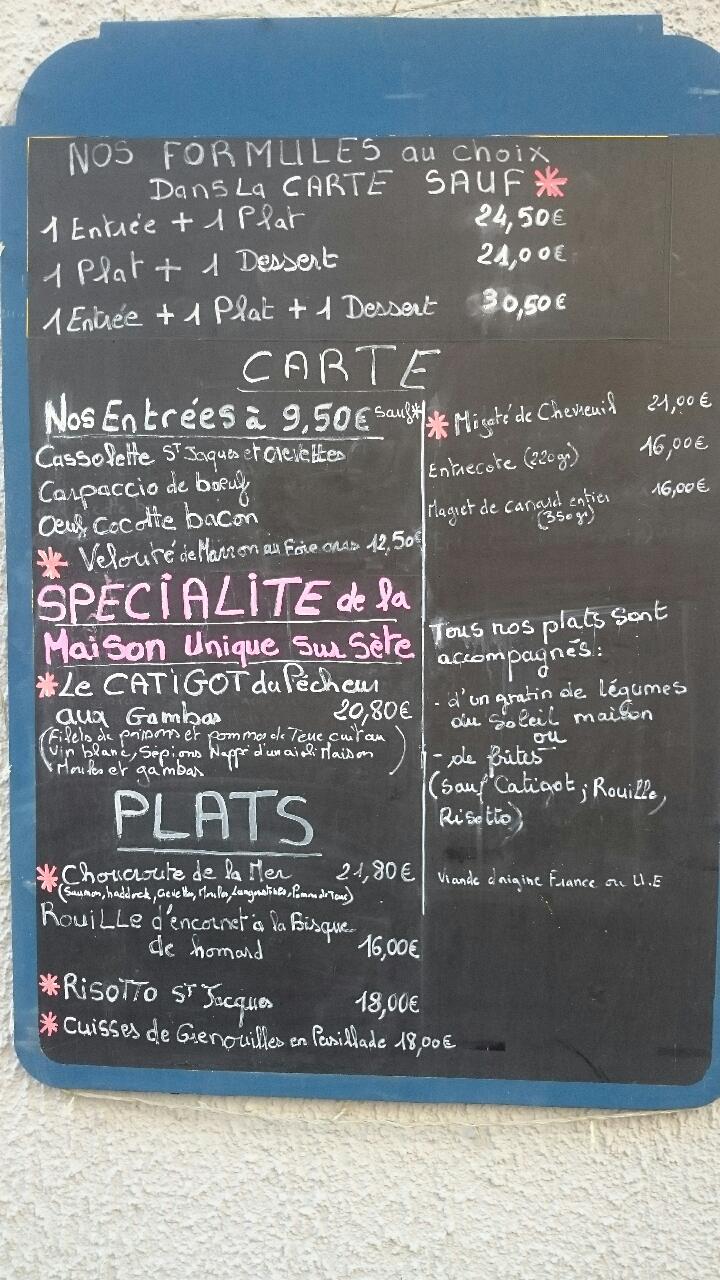 NOS FORMULES au choix
Dans La CARTE SAUF *
1 Entrée + 1 Plat 24,50€
1 Plat + 1 Dessert 21,00€
1 Entrée + 1 Plat + 1 Dessert 30,50€
CARTE
Nos Entrées à 9,50€ sauf*
Cassolette St Jaques et crevettes
Carpaccio de boeuf
Oeuf cocotte bacon
* Velouté de Marron au Foie gras 12,50€
SPÉCIALITE de la
Maison Unique Sur Sète
* Le CATIGOT du Pêcheur
aux Gambas 20,80€
(Filets de poissons et pommes de Terre cuit au
Vin blanc, Sépions Nappé d'un aioli Maison
Moules et gambas)
PLATS
* Choucroute de la Mer 21,80€
(Saumon, haddock, Crevettes, Moules, Langoustines, Pomme de Terre)
Rouille d'encornet à la Bisque
de homard 16,00€
* RisoTTo St Jacques 18,00€
* Cuisses de Grenouilles en Persillade 18,00€
* Migoté de Chevreuil 21,00€
Entrecote (220gr) 16,00€
Magret de canard entier 16,00€
(350gr)
Tous nos plats sont
accompagnés:
- d'un gratin de légumes
du soleil maison
ou
- de frites
(sauf Catigot; Rouille,
Risotto)
Viande d'origine France ou U.E